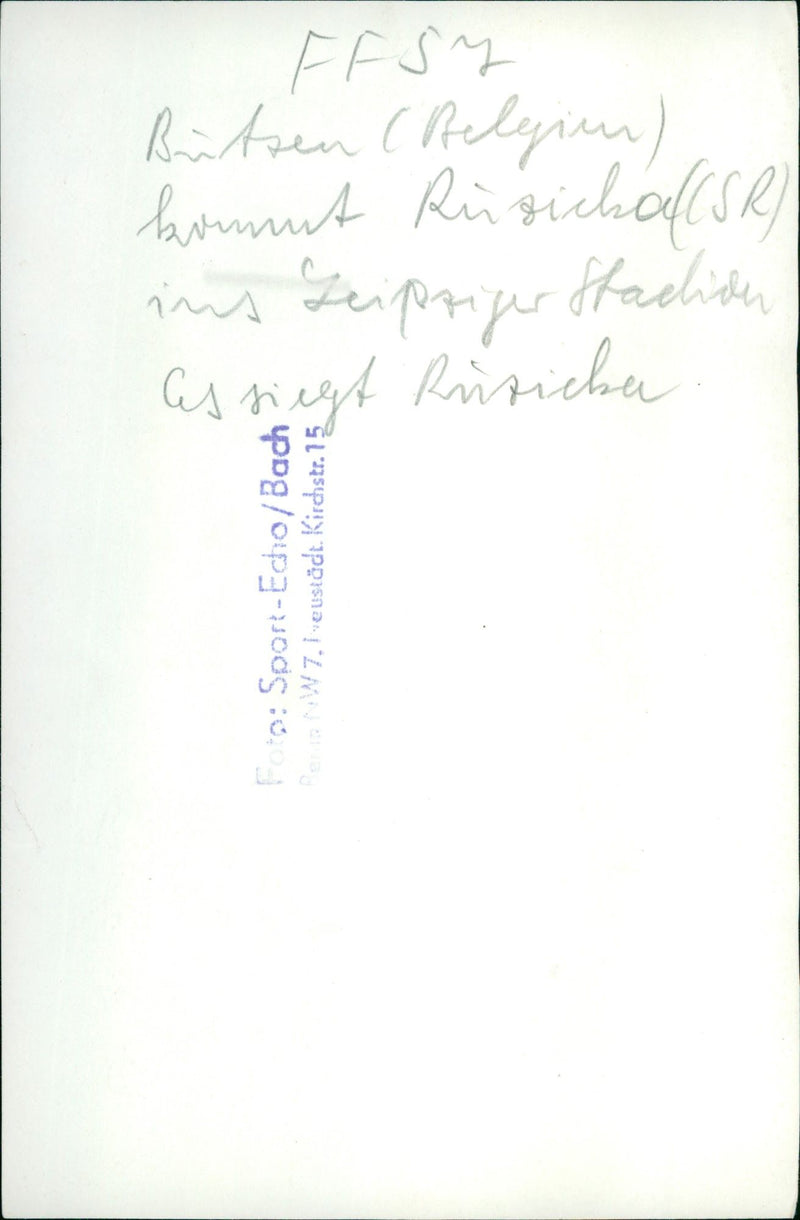 FF57
Bützen (Belgien)
kommt Rüzicka (CSR)
ins Leipziger Stadion
Es siegt Rüzicka
Foto: Sport-Echo/Bach
Berlin NW 7, Neustädt. Kirchstr. 15